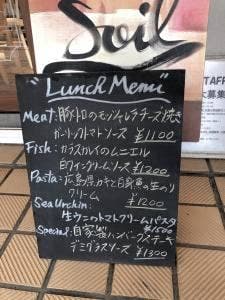 Soil
STAFF
大募集
"Lunch Menu"
Meat:豚トロのモッツァレラチーズ焼き
ガーリックトマトソース ¥1100
Fish:カラスカレイのムニエル
白ワインクリームソース ¥1200
Pasta:広島県カキと自家製の生のり
クリーム ¥1200
Sea Urchin:
生ウニのトマトクリームパスタ
¥1500
Special:自家製ハンバーグステーキ
デミグラスソース ¥1300